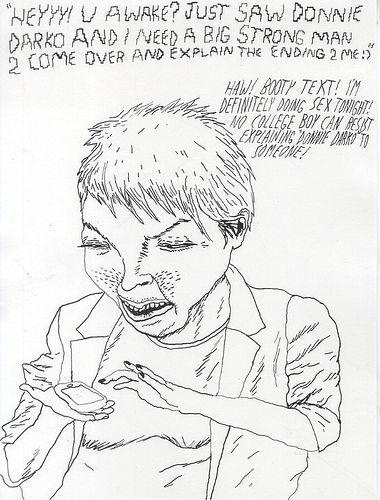 "HEYYY! U AWAKE? JUST SAW DONNIE
DARKO AND I NEED A BIG STRONG MAN
2 COME OVER AND EXPLAIN THE ENDING 2 ME!:)"
HAW! BOOTY TEXT! I'M
DEFINITELY DOING SEX TONIGHT!
NO COLLEGE BOY CAN RESIST
EXPLAINING "DONNIE DARKO" TO
SOMEONE!